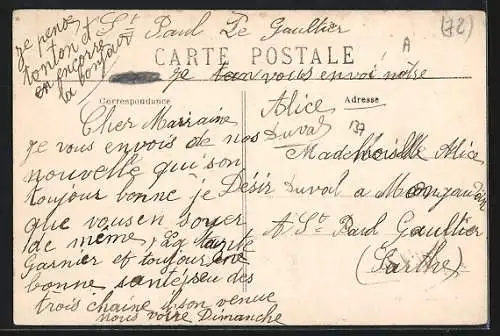 St Paul Le Gaultier
(72)
je pense
tonton et
en encorre
la bonjour
A
CARTE POSTALE
je vous envoi nôtre
Correspondance
Adresse
Alice
Duval
137
Cher Marraine
je vous envois de nos
nouvelle qui son
toujour bonne je Désir
que vous en soyer
de même, La tante
Garnier et toujour en
bonne santé des
trois chaine son venue
nous voire Dimanche
Mademoiselle Alice
Duval a
A St Paul Gaultier
(Sarthe)